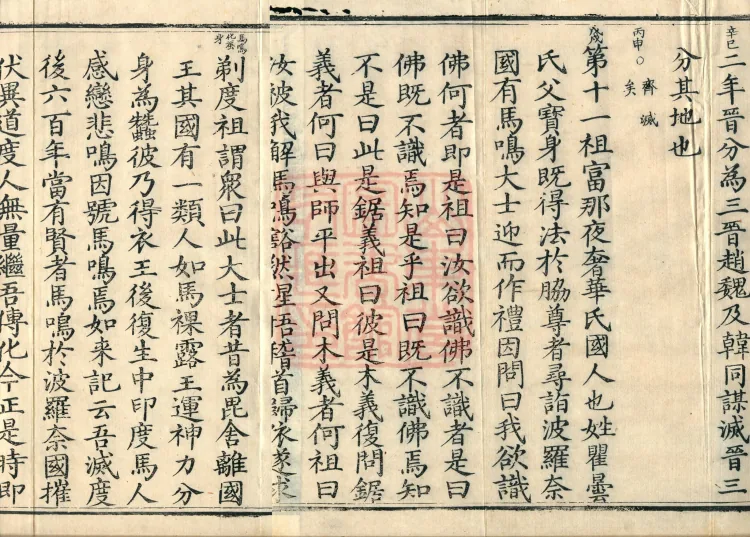 辛巳二年晉分為三晉趙魏及韓同謀滅晉三
分其地也
丙申○齊滅
矣
歲第十一祖富那夜奢華氏國人也姓瞿曇
氏父寶身既得法於脇尊者尋詣波羅奈
國有馬鳴大士迎而作禮因問曰我欲識
佛何者即是祖曰汝欲識佛不識者是曰
佛既不識焉知是乎祖曰既不識佛焉知
不是曰此是鋸義祖曰彼是木義復問鋸
義者何曰與師平出又問木義者何祖曰
汝被我解馬鳴豁然星悟稽首歸依遂求
馬鳴
化蚕
身
剃度祖謂衆曰此大士者昔為毘舍離國
王其國有一類人如馬裸露王運神力分
身為蠶彼乃得衣王後復生中印度馬人
感戀悲鳴因號馬鳴焉如来記云吾滅度
後六百年當有賢者馬鳴於波羅奈國摧
伏異道度人無量繼吾傳化今正是時即